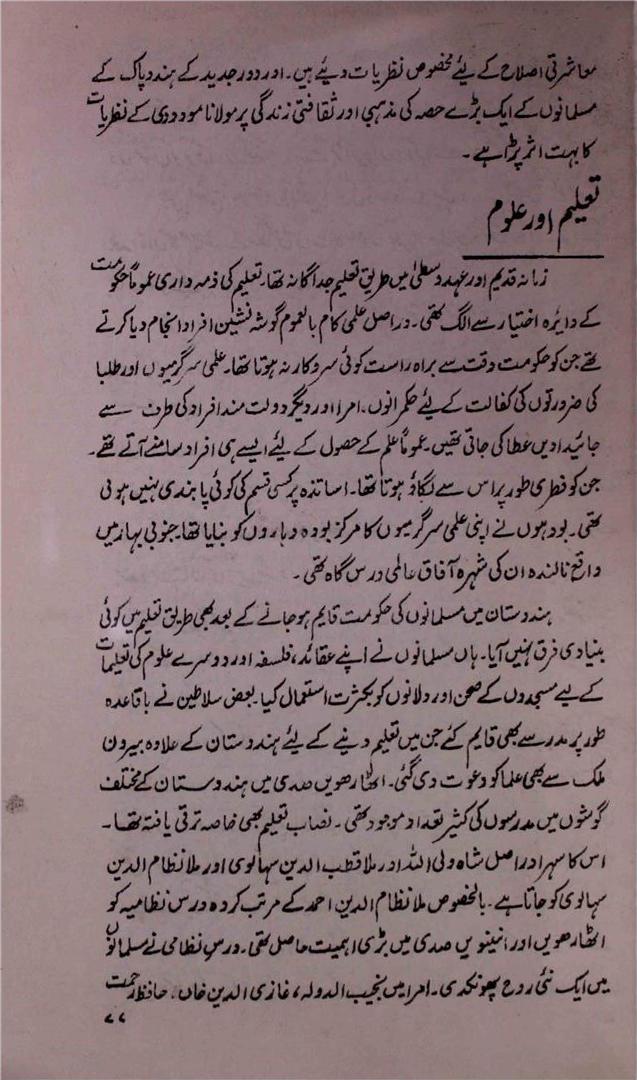 معاشرتی اصلاح کے لیئے مخصوص نظریات دیئے ہیں۔ اور دور جدید کے ہندو پاک کے
مسلمانوں کے ایک بڑے حصہ کی مذہبی اور ثقافتی زندگی پر مولانا مودودی کے نظریات
کا بہت اثر پڑا ہے۔
تعلیم اور علوم
زمانہ قدیم اور عہد وسطیٰ میں طریق تعلیم جداگانہ تھا۔ تعلیم کی ذمہ داری عموماً حکومت
کے دایرہ اختیار سے الگ تھی۔ در اصل علمی کام بالعموم گوشہ نشین افراد انجام دیا کرتے
تھے جن کو حکومت وقت سے براہ راست کوئی سروکار نہ ہوتا تھا۔ علمی سرگرمیوں اور طلبا
کی ضرورتوں کی کفالت کے لیئے حکمرانوں، امرا اور دیگر دولت مند افراد کی طرف سے
جائیدادیں عطا کی جاتی تھیں۔ عموماً علم کے حصول کے لیئے ایسے ہی افراد سامنے آتے تھے۔
جن کو فطری طور پر اس سے لگاؤ ہوتا تھا۔ اساتذہ پر کسی قسم کی کوئی پابندی نہیں ہوتی
تھی۔ بودھوں نے اپنی علمی سرگرمیوں کا مرکز بودھ وہاروں کو بنایا تھا۔ جنوبی بہار میں
واقع نالندہ ان کی شہرہ آفاق عالمی درس گاہ تھی۔
ہندوستان میں مسلمانوں کی حکومت قایم ہو جانے کے بعد بھی طریق تعلیم میں کوئی
بنیادی فرق نہیں آیا۔ ہاں مسلمانوں نے اپنے عقائد، فلسفہ اور دوسرے علوم کی تعلیمات
کے لیے مسجدوں کے صحن اور دلانوں کو بکثرت استعمال کیا۔ بعض سلاطین نے باقاعدہ
طور پر مدرسے بھی قایم کئے جن میں تعلیم دینے کے لیئے ہندوستان کے علاوہ بیرون
ملک سے بھی علما کو دعوت دی گئی۔ اٹھارھویں صدی میں ہندوستان کے مختلف
گوشوں میں مدرسوں کی کثیر تعداد موجود تھی۔ نصاب تعلیم بھی خاصہ ترقی یافتہ تھا۔
اس کا سہرا در اصل شاہ ولی اللہ اور ملا قطب الدین سہالوی اور ملا نظام الدین
سہالوی کو جاتا ہے۔ بالخصوص ملا نظام الدین احمد کے مرتب کردہ درس نظامیہ کو
اٹھارھویں اور انیسویں صدی میں بڑی اہمیت حاصل تھی۔ درسِ نظامی نے مسلمانوں
میں ایک نئی روح پھونکدی۔ امرا میں نجیب الدولہ، غازی الدین خاں، حافظ رحمت
۷۷